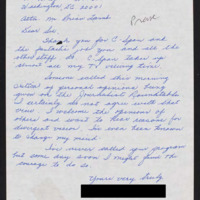 Washington, DC 20001
Attn: Mr Brian Lamb
Dear Sir
Thank you for C Span and
the fantastic job you and all the
other staff do. C Span takes up
most of my TV viewing time.
Someone called this morning
of personal opinions being
given on the Journalist Roundtable
I certainly do not agree with that
view. I welcome the opinions of
others and want to hear reasons for
divergent views. I've even been known
to change my mind.
I've never called your program
but some day soon I might find the
courage to do so.
Yours very truly